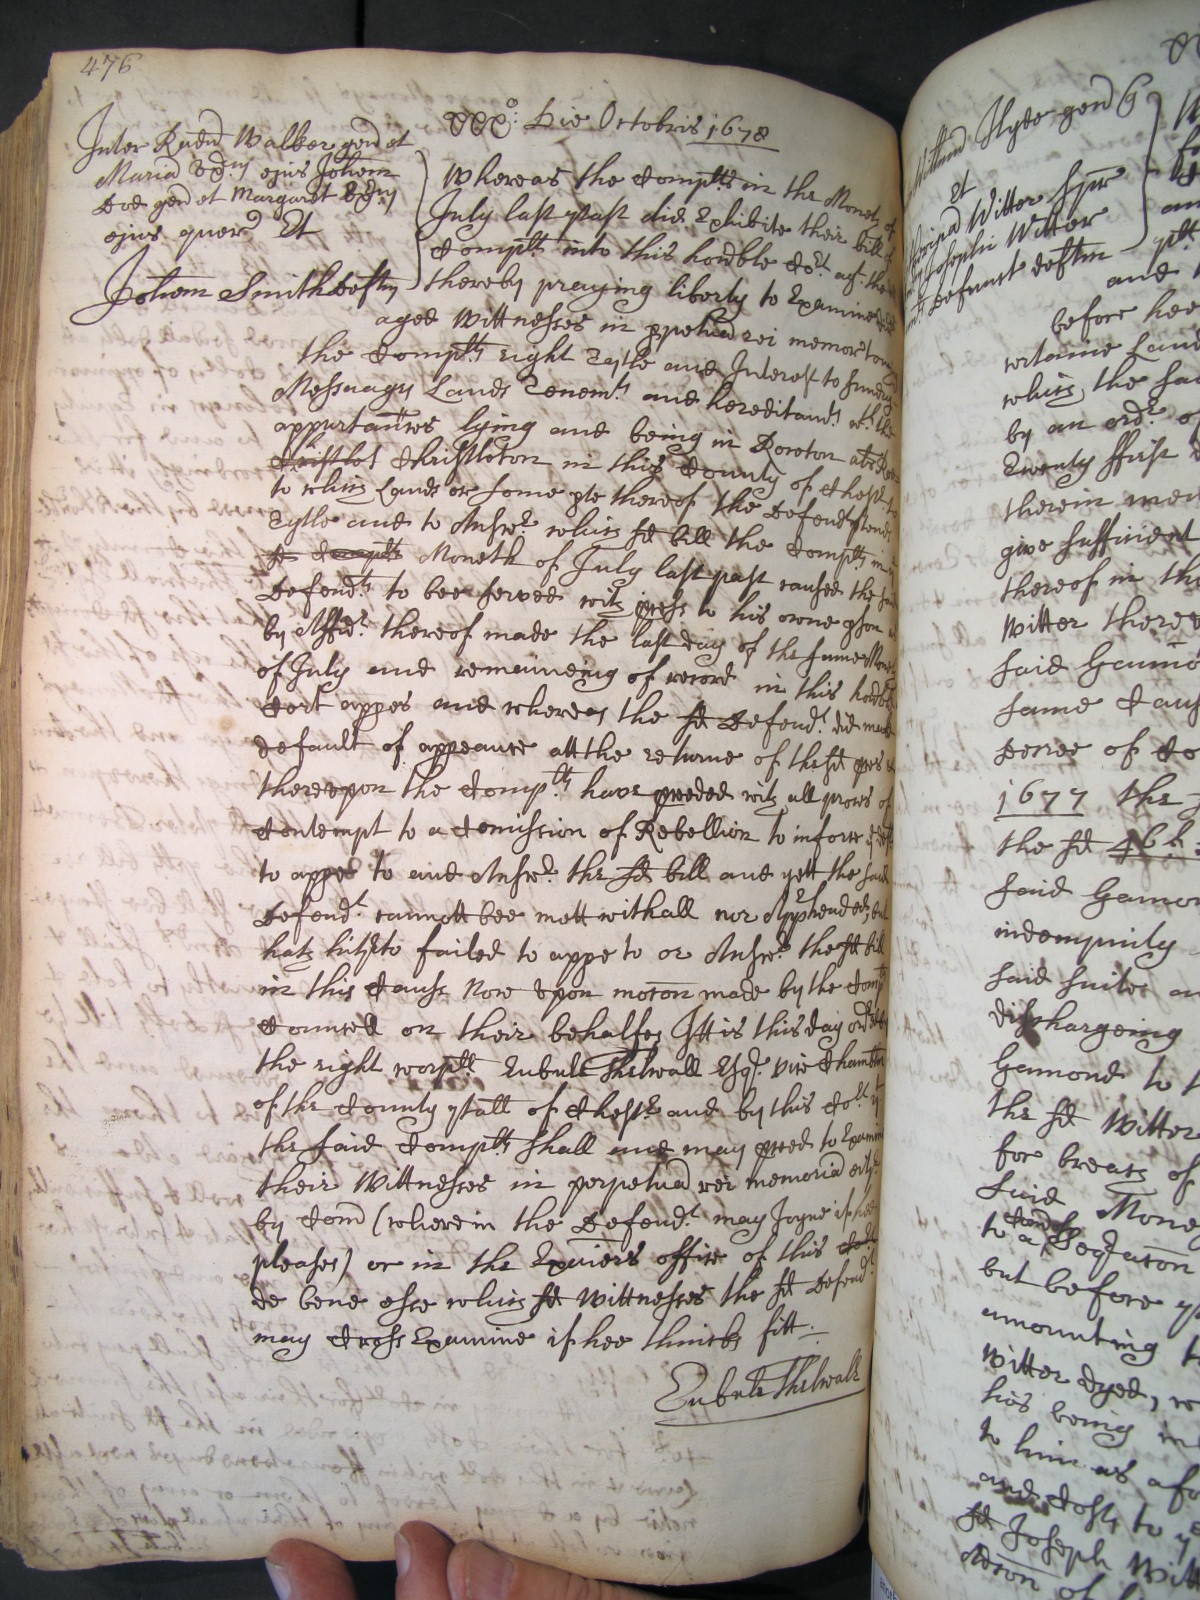 476
xxx<sup>o</sup>: Die Octobris 1678
Inter Walker gen et
Maria ux ejus Johem
gen et Margaret ux
ejus quer Et
Johem Smith deftm
Whereas the Complts in the Moneth of
July last past did Exhibite their bill of
Complt into this honoble Cort agt the
thereby praying liberty to Examine
aged Wittnesses in ppetuā rei memor touching
the Complts right Tytle and Interest to sundry
Messuages Lands Tenemts and hereditamts wth the
appurtances lying and being in
Christleton in this County of Chestr to
to which Lands or some pte thereof the Defendt ptends
Tytle and to Answr which sd bill the Complts in
Moneth of July last past caused the said
Defendt to bee served with pcess to his owne pson as
by Affidt thereof made the last day of the same Moneth
of July and remaineing of record in this honoble
Cort appes and whereas the sd Defendt did make
default of appeance att the returne of the sd pces &
thereupon the Complts have pceeded with all proces of
Contempt to a Comission of Rebellion to inforce
to appe to and Answr the sd bill and yett the said
Defendt cannott bee mett withall nor Apphended but
hath hithto failed to appe to or Answr the sd bill
in this Cause Now upon motion made by the Complts
Councell on their behalfes Itt is this day ordered by
the right worpll Eubule Thelwall Esqr vice Chambrlin
of the County pall of Chestr and by this Cort yt
the said Complts shall and may pceed to Examine
their Wittnesses in perpetuā rei memoriā eithr
by Com (wherein the Defendt may Joyne if hee
pleases) or in the Exaiers office of this Cort
de bene esse which sd Wittnesses the sd Defendt
may Cross Examine if hee thincks fitt.
Eubule Thelwall
Hyde gen
et
Witter
Josephi Witter
Defunct deftm
and
before hee
certaine Land
which the said
by an ordr of
Twenty ffirst
therein men
give sufficient
thereof in the
Witter there
said Gamo
same Caus
Decree of Co
1677 the
the sd
said Gamon
indempnity
said suite an
dischargeing
Gamond to
the sd Witter
for breach of
said Money
Cause
to a Seqtacon
but before
amounting to
Witter dyed,
his being in
to him as afo
and Costs to
sd Joseph Witt
of